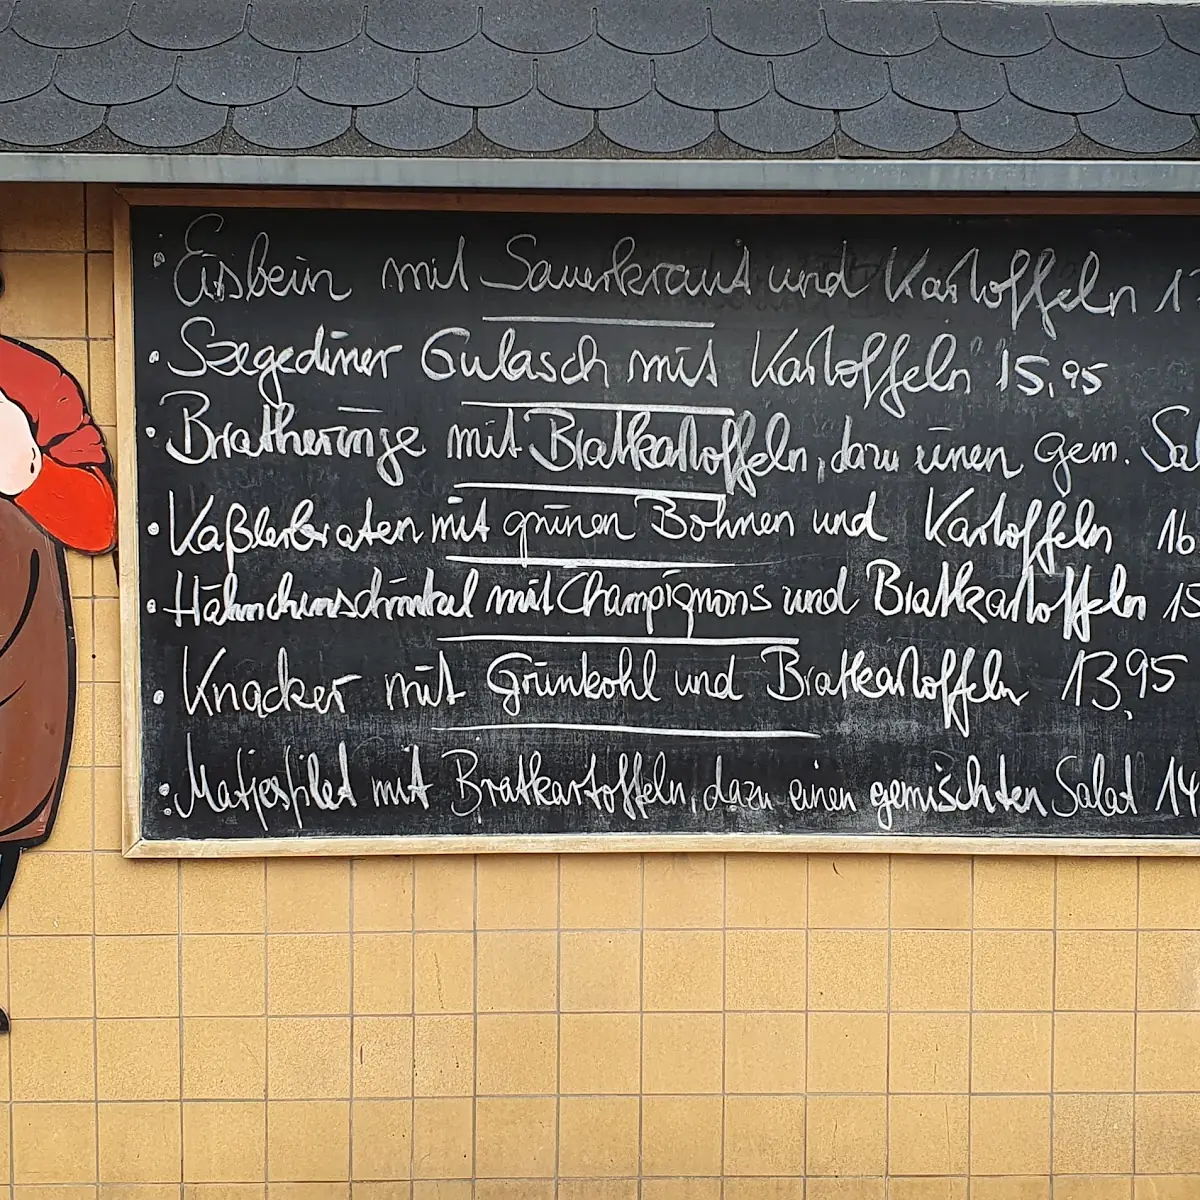 · Eisbein mit Sauerkraut und Kartoffeln 1
· Szegediner Gulasch mit Kartoffeln 15,95
· Bratheringe mit Bratkartoffeln, dazu einen gem. Sal
· Kaßlerbraten mit grünen Bohnen und Kartoffeln 16
· Hähnchenschnitzel mit Champignons und Bratkartoffeln 15
· Knacker mit Grünkohl und Bratkartoffeln 13,95
· Matjesfilet mit Bratkartoffeln, dazu einen gemischten Salat 14